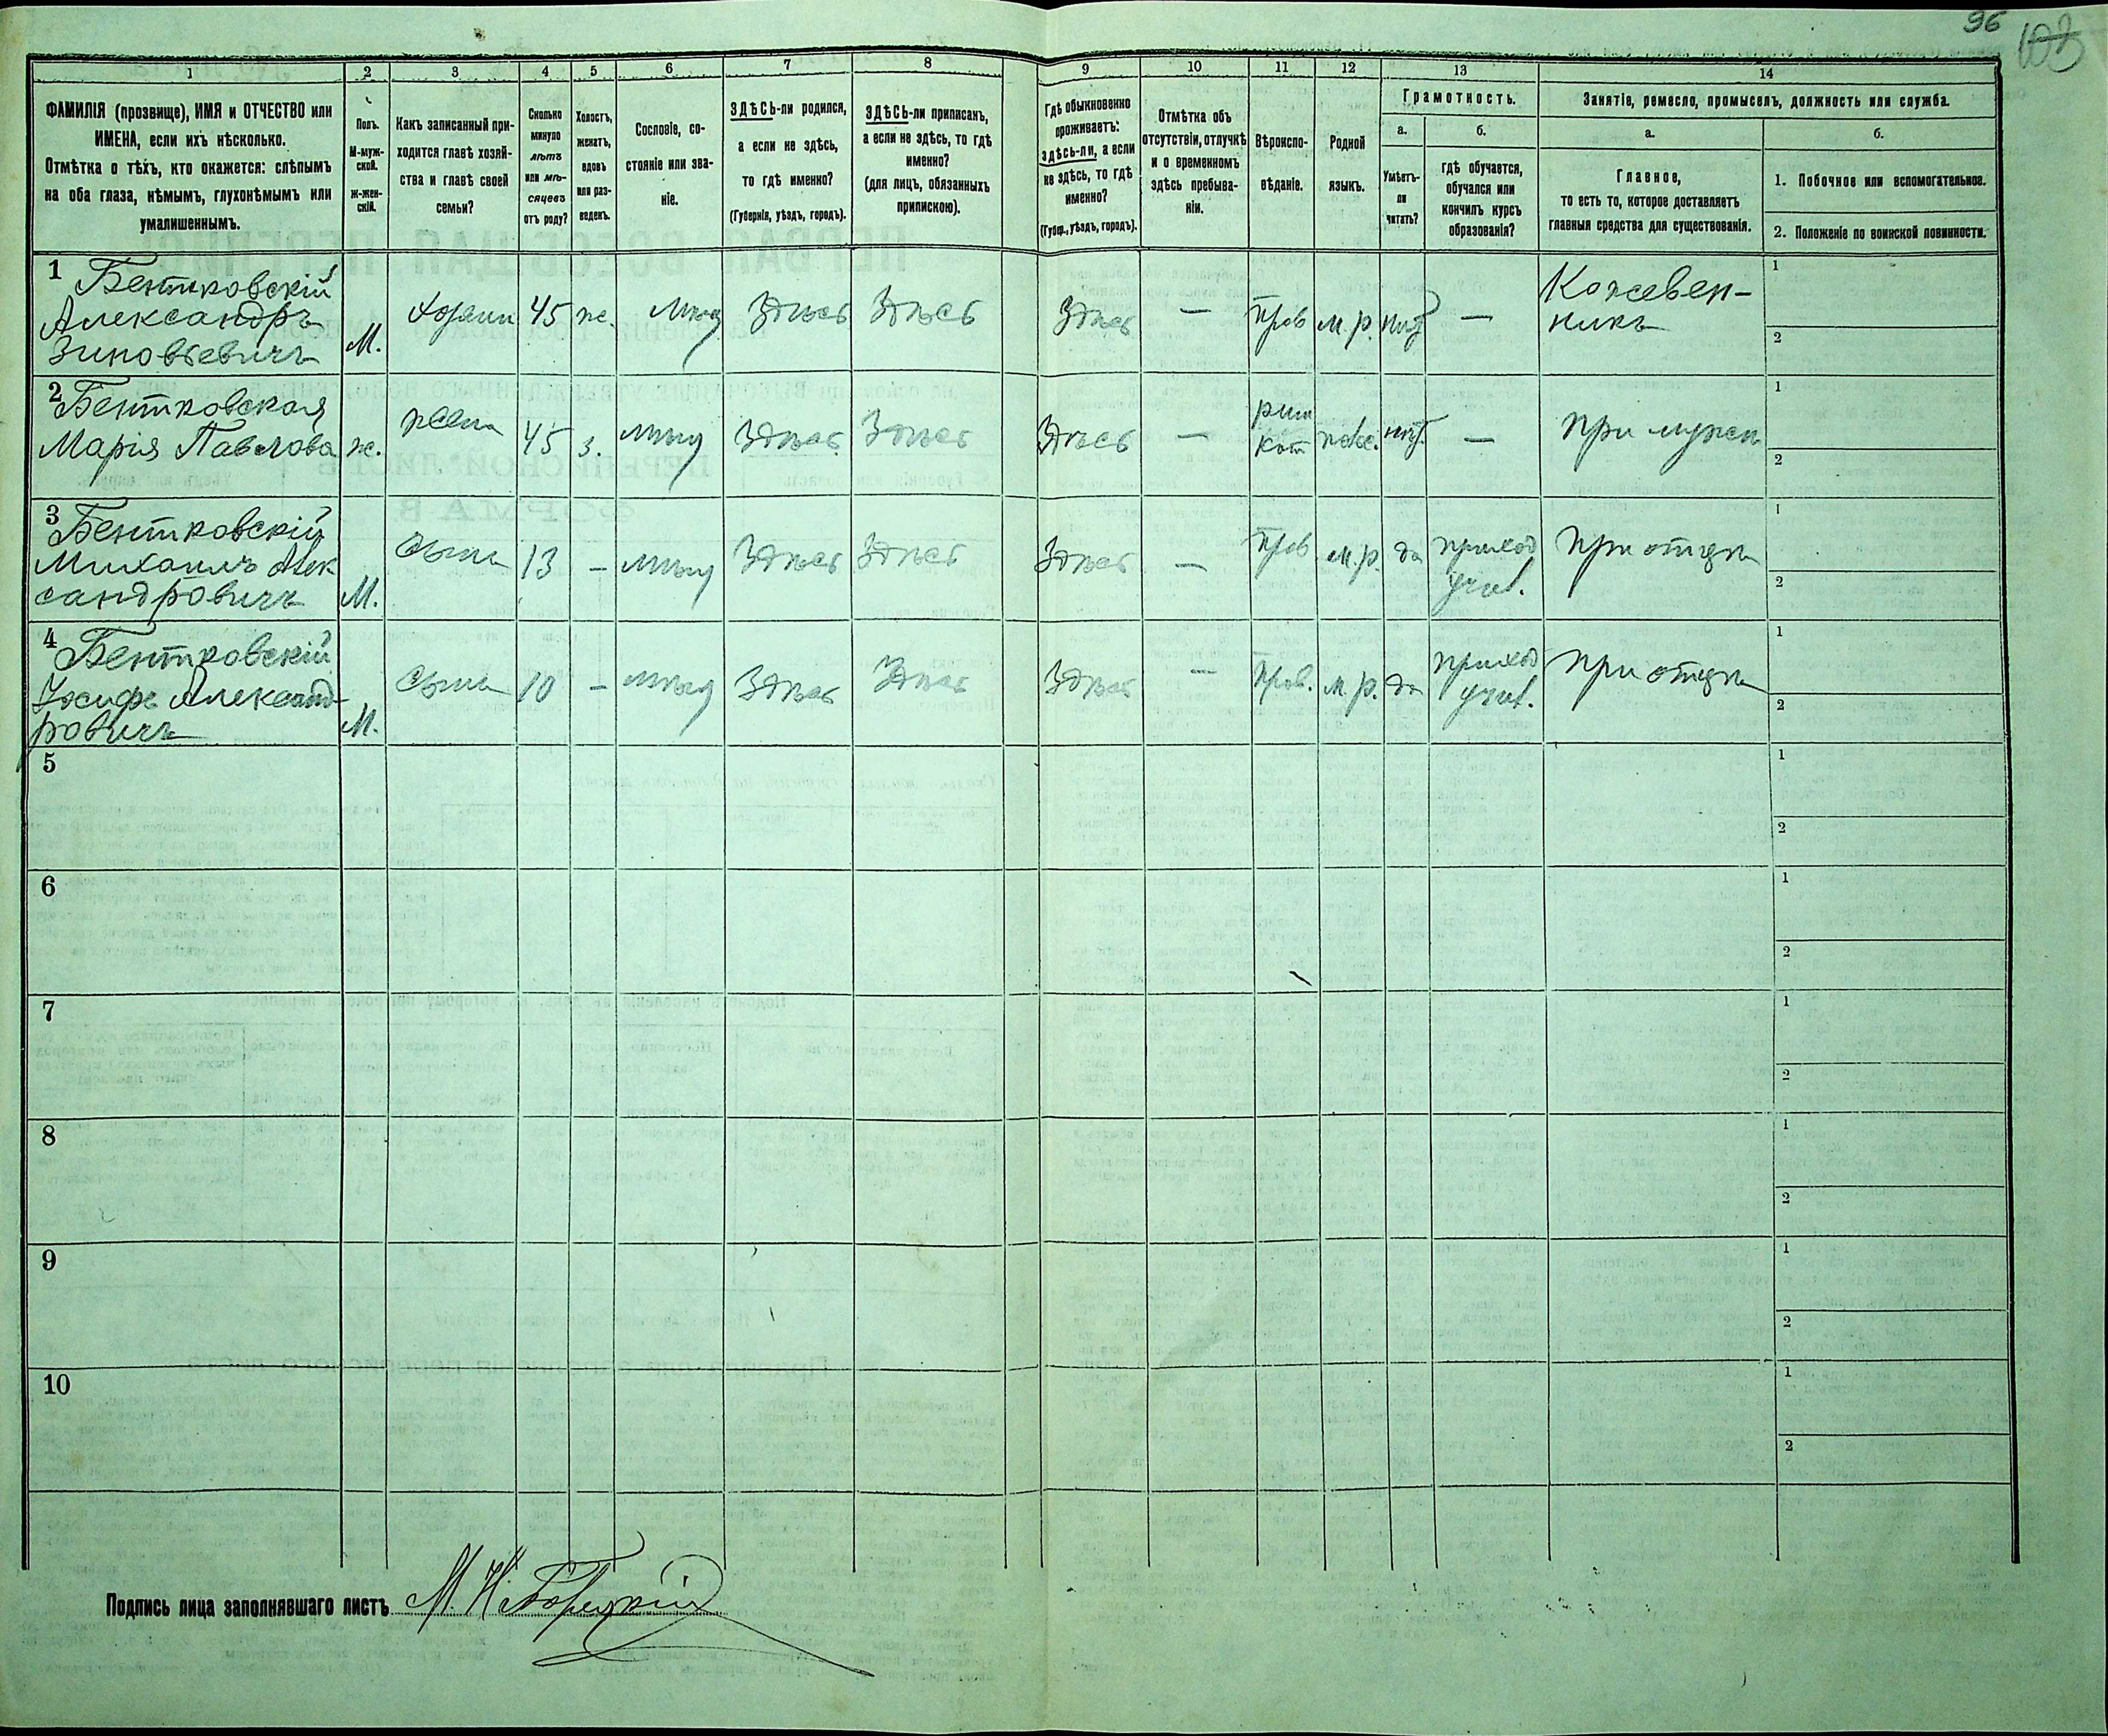 96
103
1 2 3 4 5 6 7 8 9 10 11 12 13 14
ФАМИЛІЯ (прозвище), ИМЯ и ОТЧЕСТВО или
ИМЕНА, если ихъ нѣсколько.
Отмѣтка о тѣхъ, кто окажется: слѣпымъ
на оба глаза, нѣмымъ, глухонѣмымъ или
умалишеннымъ.
Полъ.
М-муж-
ской.
ж-жен-
скій.
Какъ записанный при-
ходится главѣ хозяй-
ства и главѣ своей
семьи?
Сколько
минуло
лѣтъ
или мѣ-
сяцевъ
отъ роду?
Холостъ,
женатъ,
вдовъ
или раз-
веденъ.
Сословіе, со-
стояніе или зва-
ніе.
ЗДѢСЬ-ли родился,
а если не здѣсь,
то гдѣ именно?
(Губернія, уѣздъ, городъ).
ЗДѢСЬ-ли приписанъ,
а если не здѣсь, то гдѣ
именно?
(для лицъ, обязанныхъ
припискою).
Гдѣ обыкновенно
проживаетъ:
здѣсь-ли, а если
не здѣсь, то гдѣ
именно?
(Губер., уѣздъ, городъ).
Отмѣтка объ
отсутствіи, отлучкѣ
и о временномъ
здѣсь пребыва-
ніи.
Вѣроиспо-
вѣданіе.
Родной
языкъ.
Грамотность.
а.
Умѣетъ-
ли
читать?
б.
гдѣ обучается,
обучался или
кончилъ курсъ
образованія?
Занятіе, ремесло, промыселъ, должность или служба.
а.
Главное,
то есть то, которое доставляетъ
главныя средства для существованія.
б.
1. Побочное или вспомогательное.
2. Положеніе по воинской повинности.
1 Бентковскій
Александръ
Зиновьевичъ
М.
Хозяин
45
ж.
Мѣщ
Здѣсь
Здѣсь
Здѣсь
—
Прав
м.р.
нѣт
—
Кожевен-
никъ
1
2
2 Бентковская
Марія Павлова
ж.
жена
45
з.
мѣщ
Здѣсь
Здѣсь
Здѣсь
—
рим
кат
польс.
нѣт.
—
при мужѣ
1
2
3 Бентковскій
Михаилъ Алек
сандровичъ
М.
Сынъ
13
—
мѣщ
Здѣсь
Здѣсь
Здѣсь
—
Прав
м.р.
да
приход
учил.
при отцѣ
1
2
4 Бентковскій
Іосифъ Александ-
ровичъ
М.
Сынъ
10
—
мѣщ
Здѣсь
Здѣсь
Здѣсь
—
Прав.
м.р.
да
приход
учил.
при отцѣ
1
2
5
1
2
6
1
2
7
1
2
8
1
2
9
1
2
10
1
2
Подпись лица заполнявшаго листъ